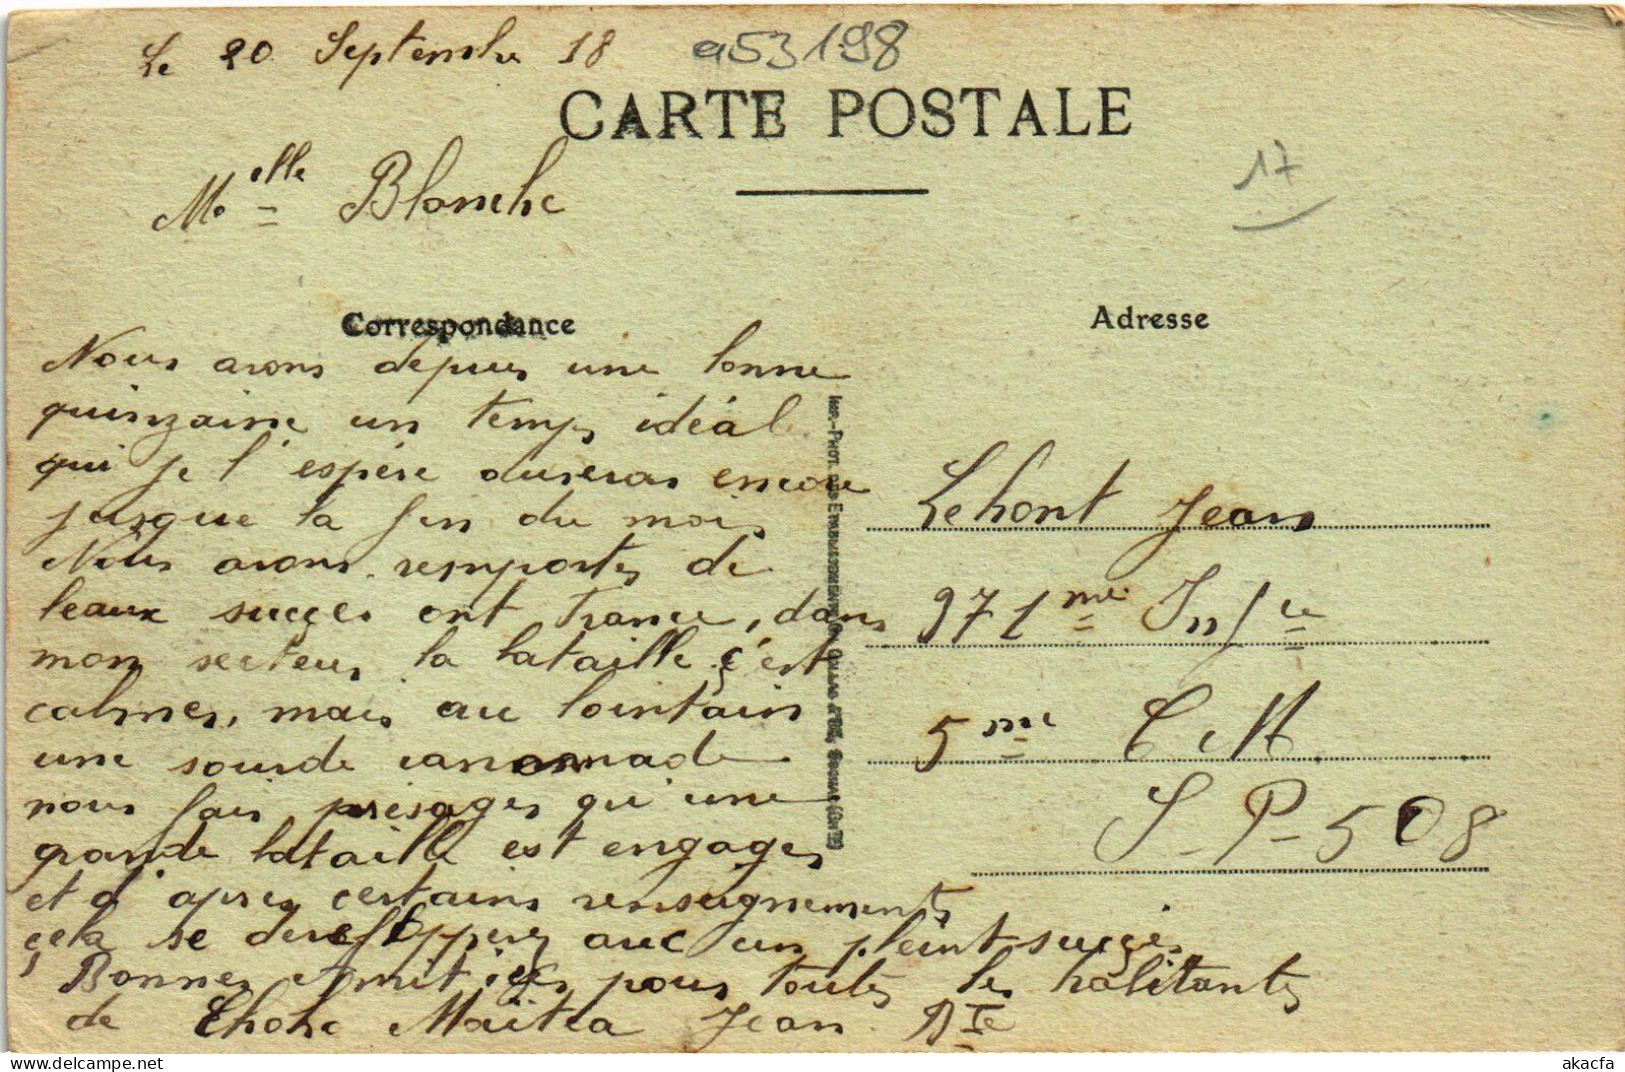 Le 20 Septembre 18
a53198
CARTE POSTALE
17
Melle Blanche
Correspondance
Adresse
Nous avons depuis une bonne
quinzaine un temps idéal
qui je l'espére dureras encore
jusque la fin du mois
Nous avons remportes de
beaux succçes ont France, dans
mon secteur la bataille ç'est
calmer, mais au lointain
une sourde canonnade
nous fais présager qu'une
grande bataille est engager
et d'apres certains renseignements
çela se develloppera avec un pleint succçes
Bonnes Amitiées pour toutes les habitantes
de Ehohe Maïtea Jean
Lehont Jean
371me Infie
5me C M
S-P-508
Imp.-Phot. des
akacfa